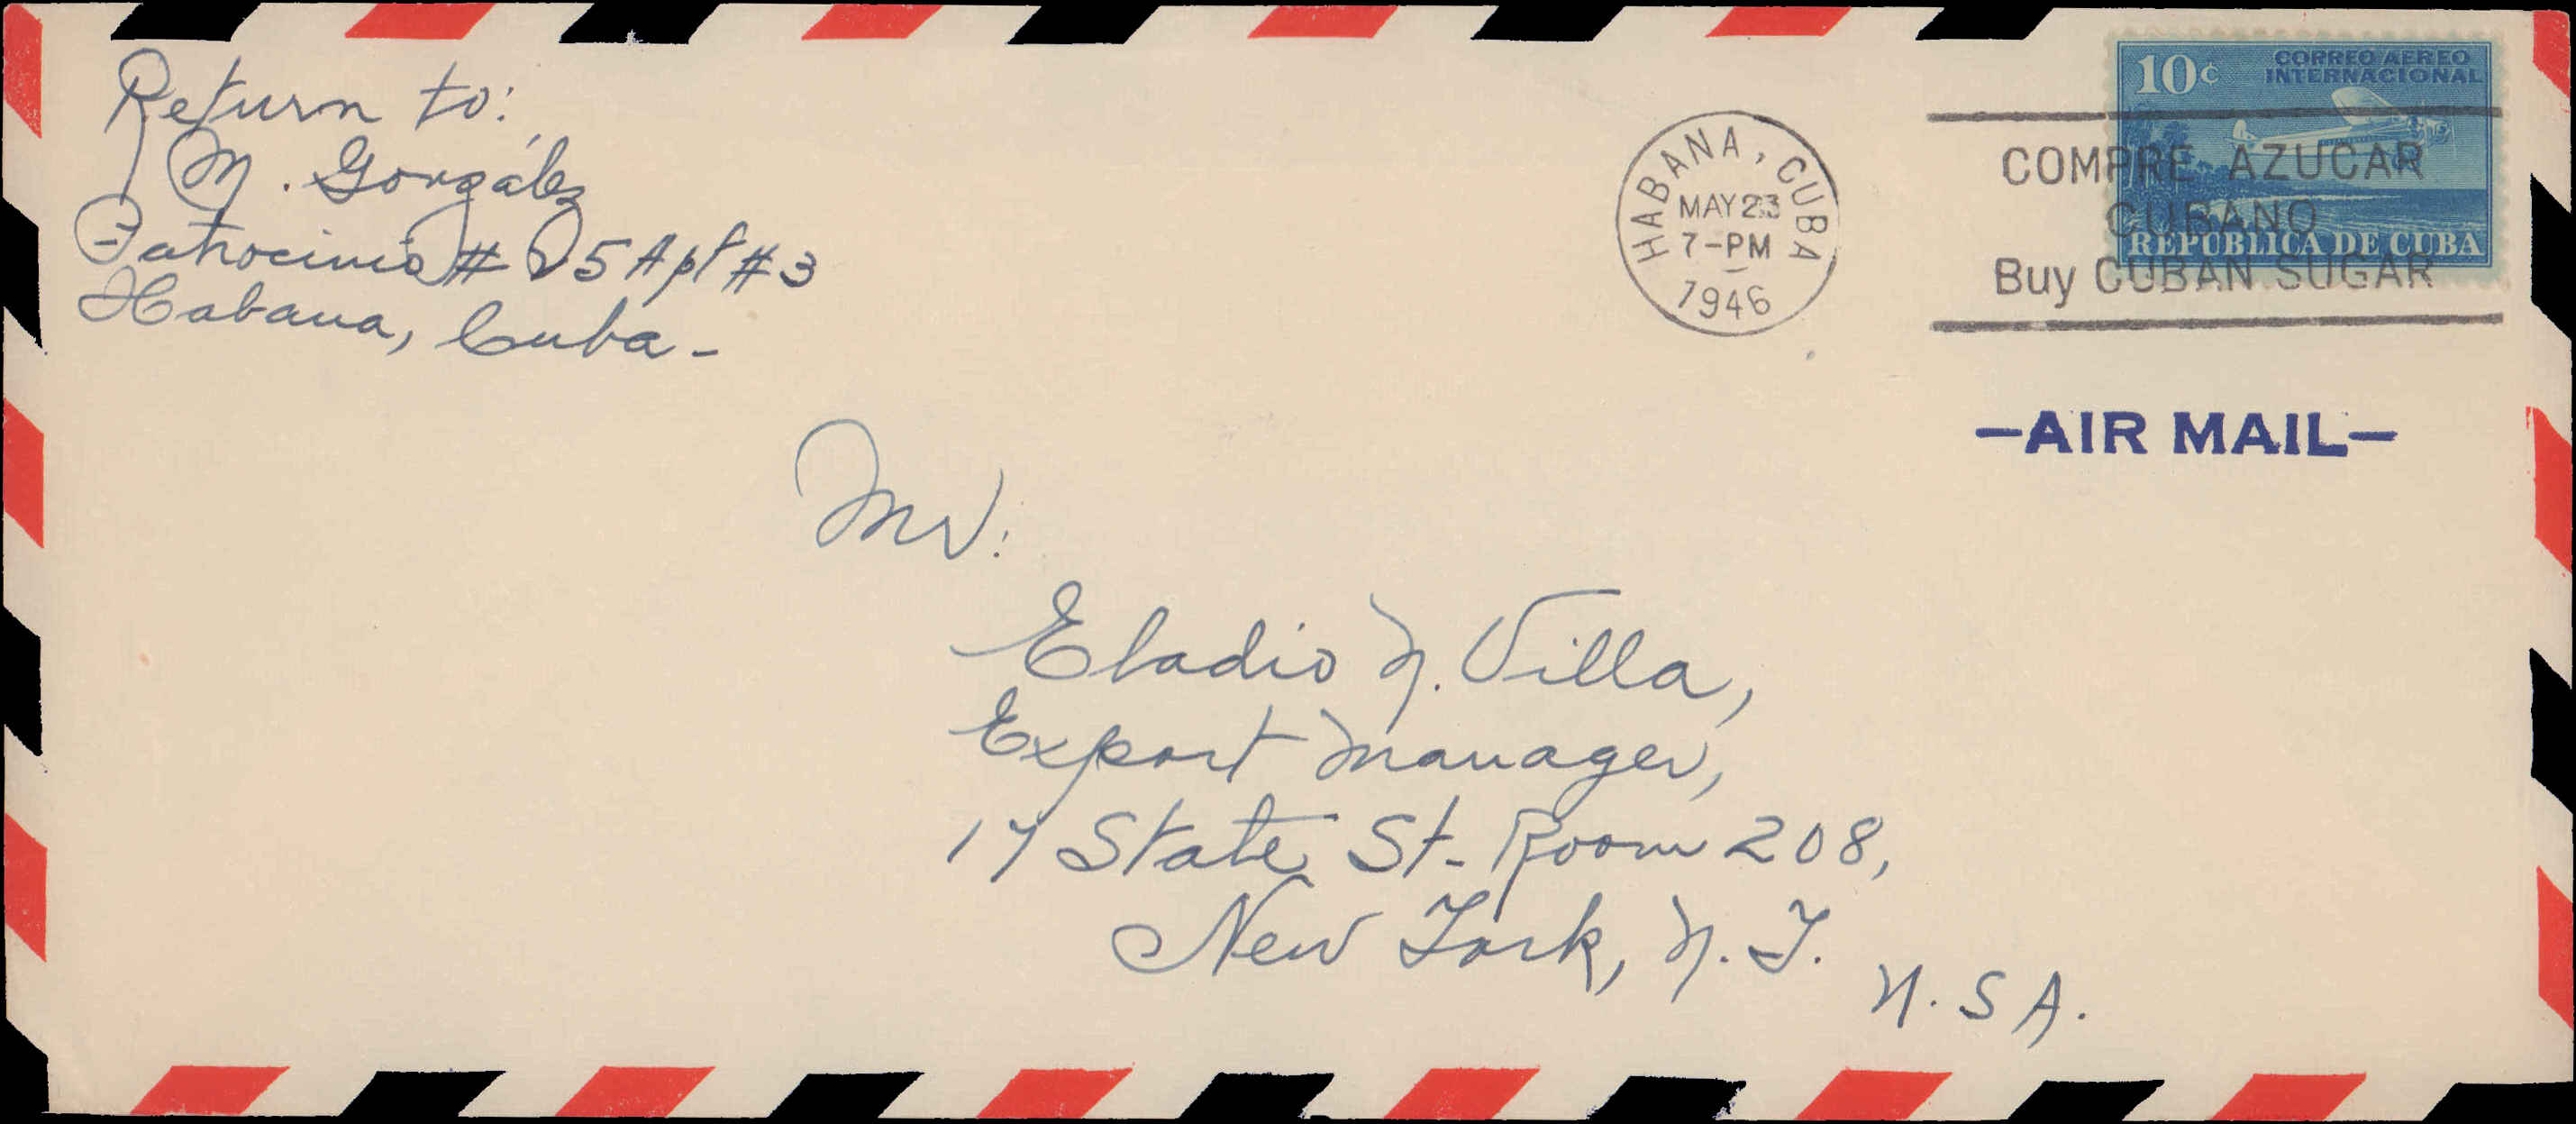 Return to:
M. González
Patrocinio # 25 Apt #3
Habana, Cuba-
HABANA, CUBA
MAY 23
7-PM
1946
10¢
CORREO AEREO
INTERNACIONAL
REPUBLICA DE CUBA
COMPRE AZUCAR
CUBANO
Buy CUBAN SUGAR
-AIR MAIL-
Mr:
Eladio N. Villa,
Export Manager,
17 State St- Room 208,
New York, N.Y.
U.S.A.